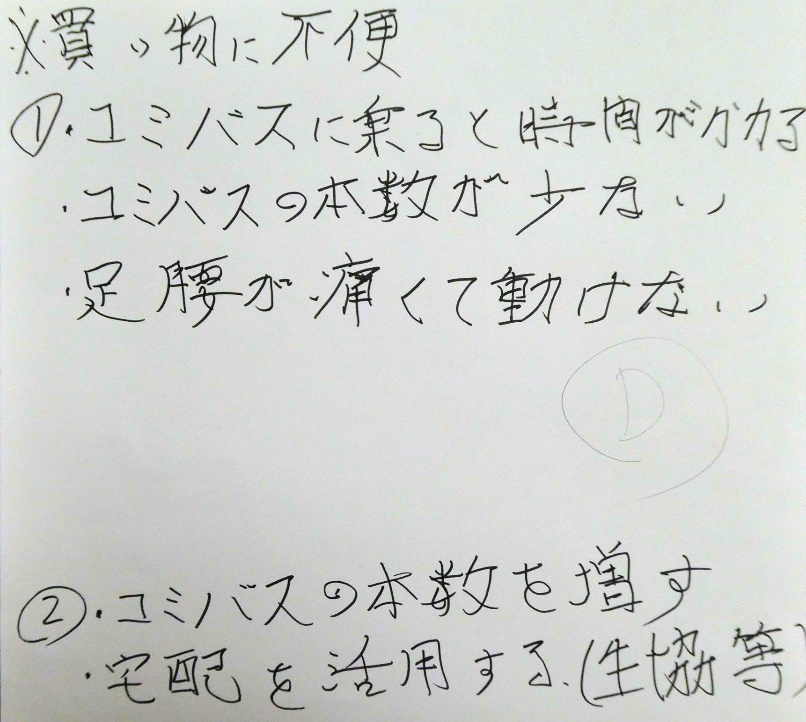 ※買い物に不便
①・コミバスに乗ると時間がかかる
・コミバスの本数が少ない
・足腰が痛くて動けない
D
②・コミバスの本数を増す
・宅配を活用する(生協等)